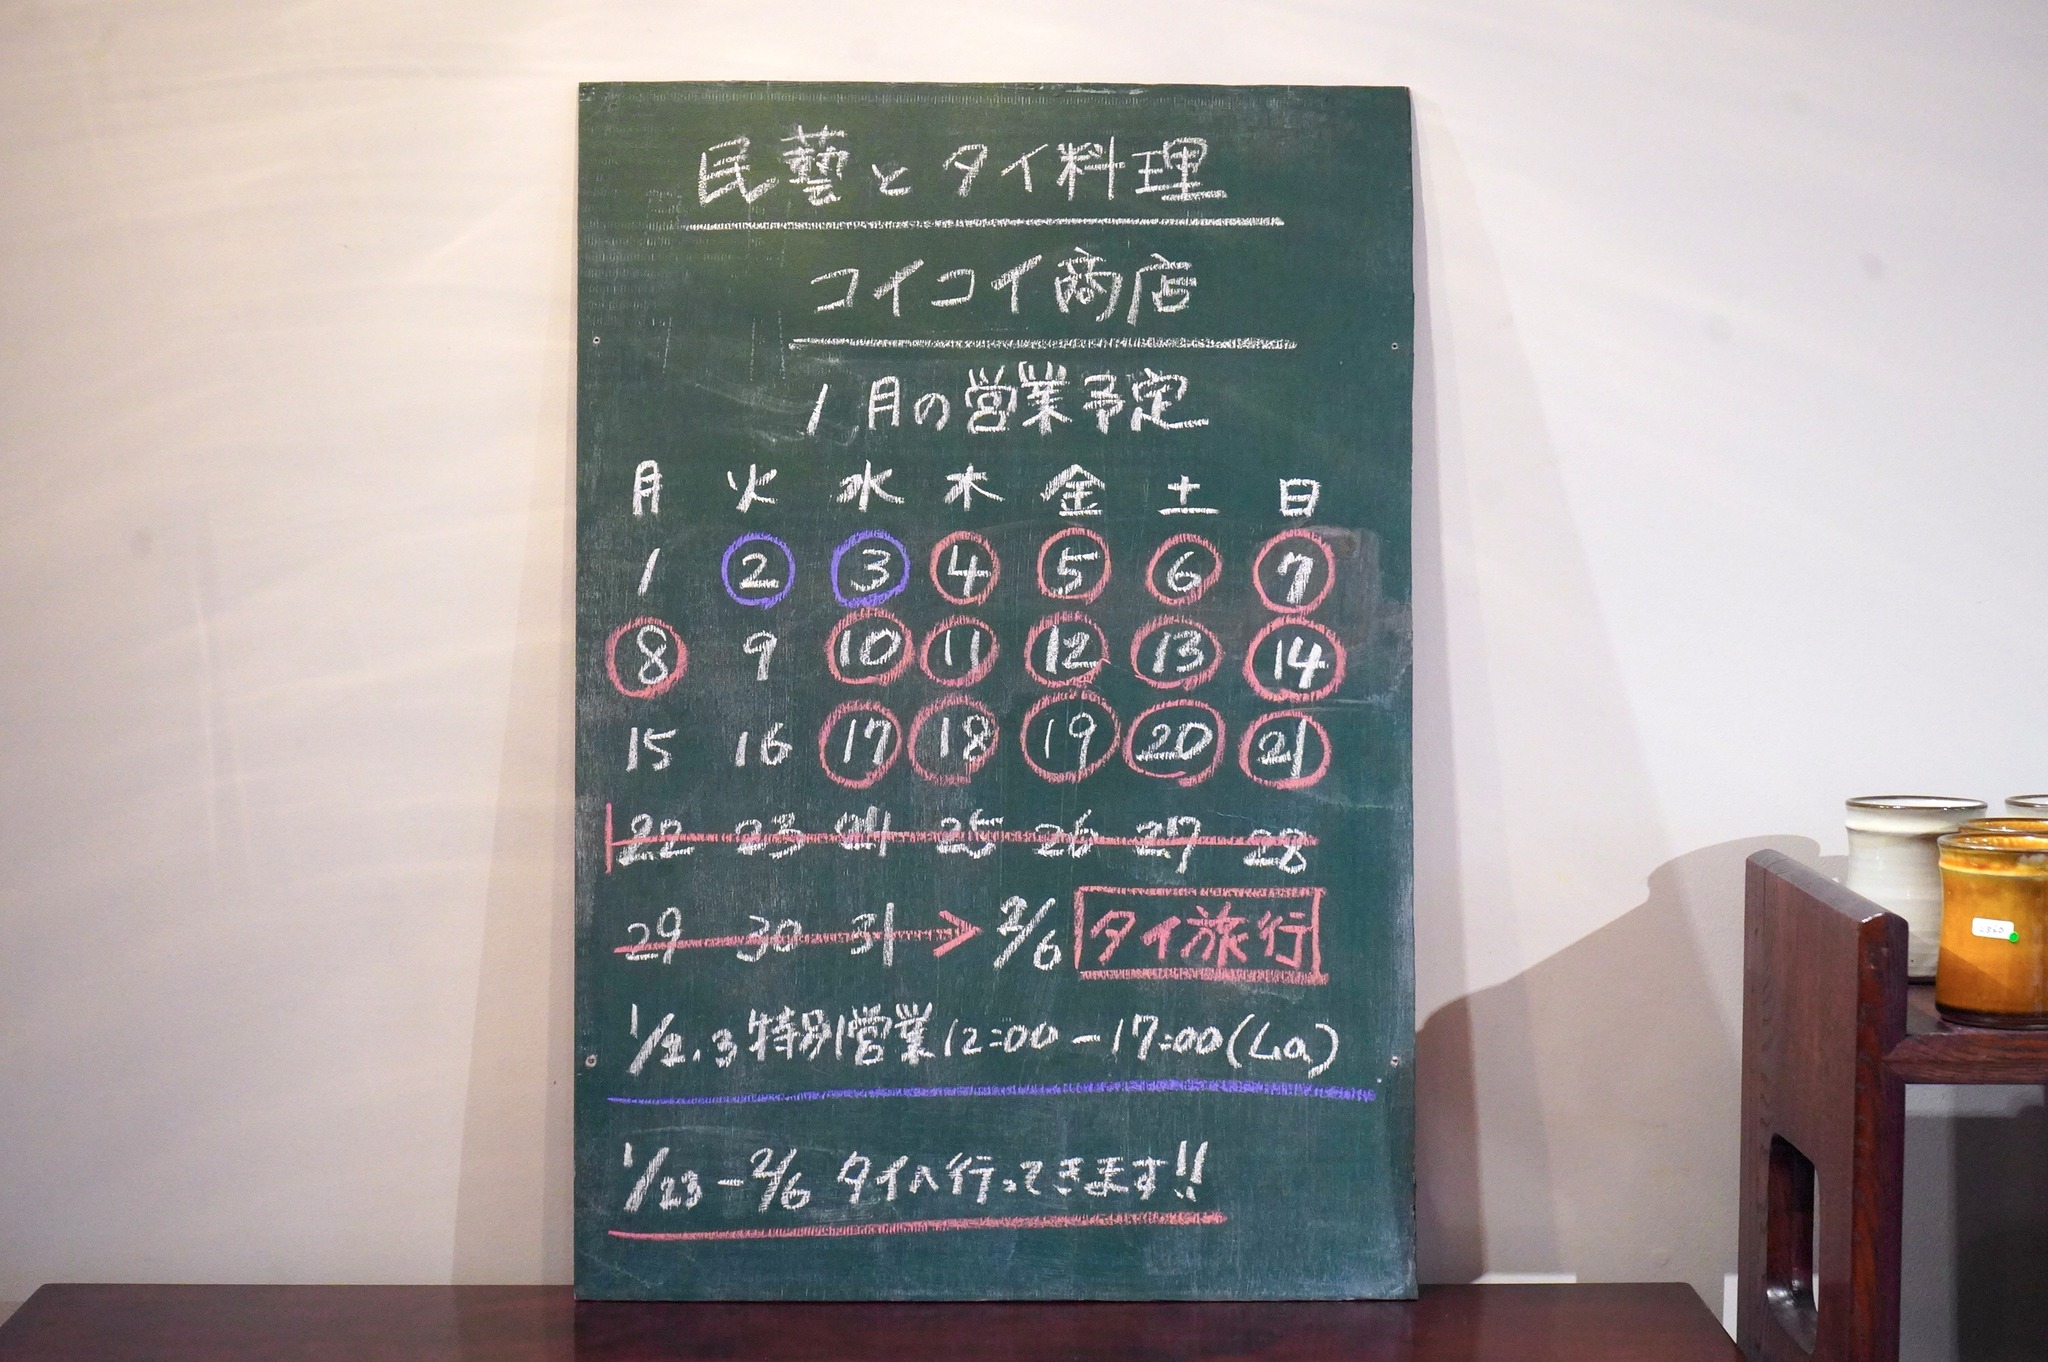 民藝とタイ料理
コイコイ商店
1月の営業予定
月 火 水 木 金 土 日
1 2 3 4 5 6 7
8 9 10 11 12 13 14
15 16 17 18 19 20 21
22 23 24 25 26 27 28
29 30 31 > 2/6 タイ旅行
1/2.3 特別営業 12:00-17:00(L.o.)
1/23-2/6 タイへ行ってきます!!